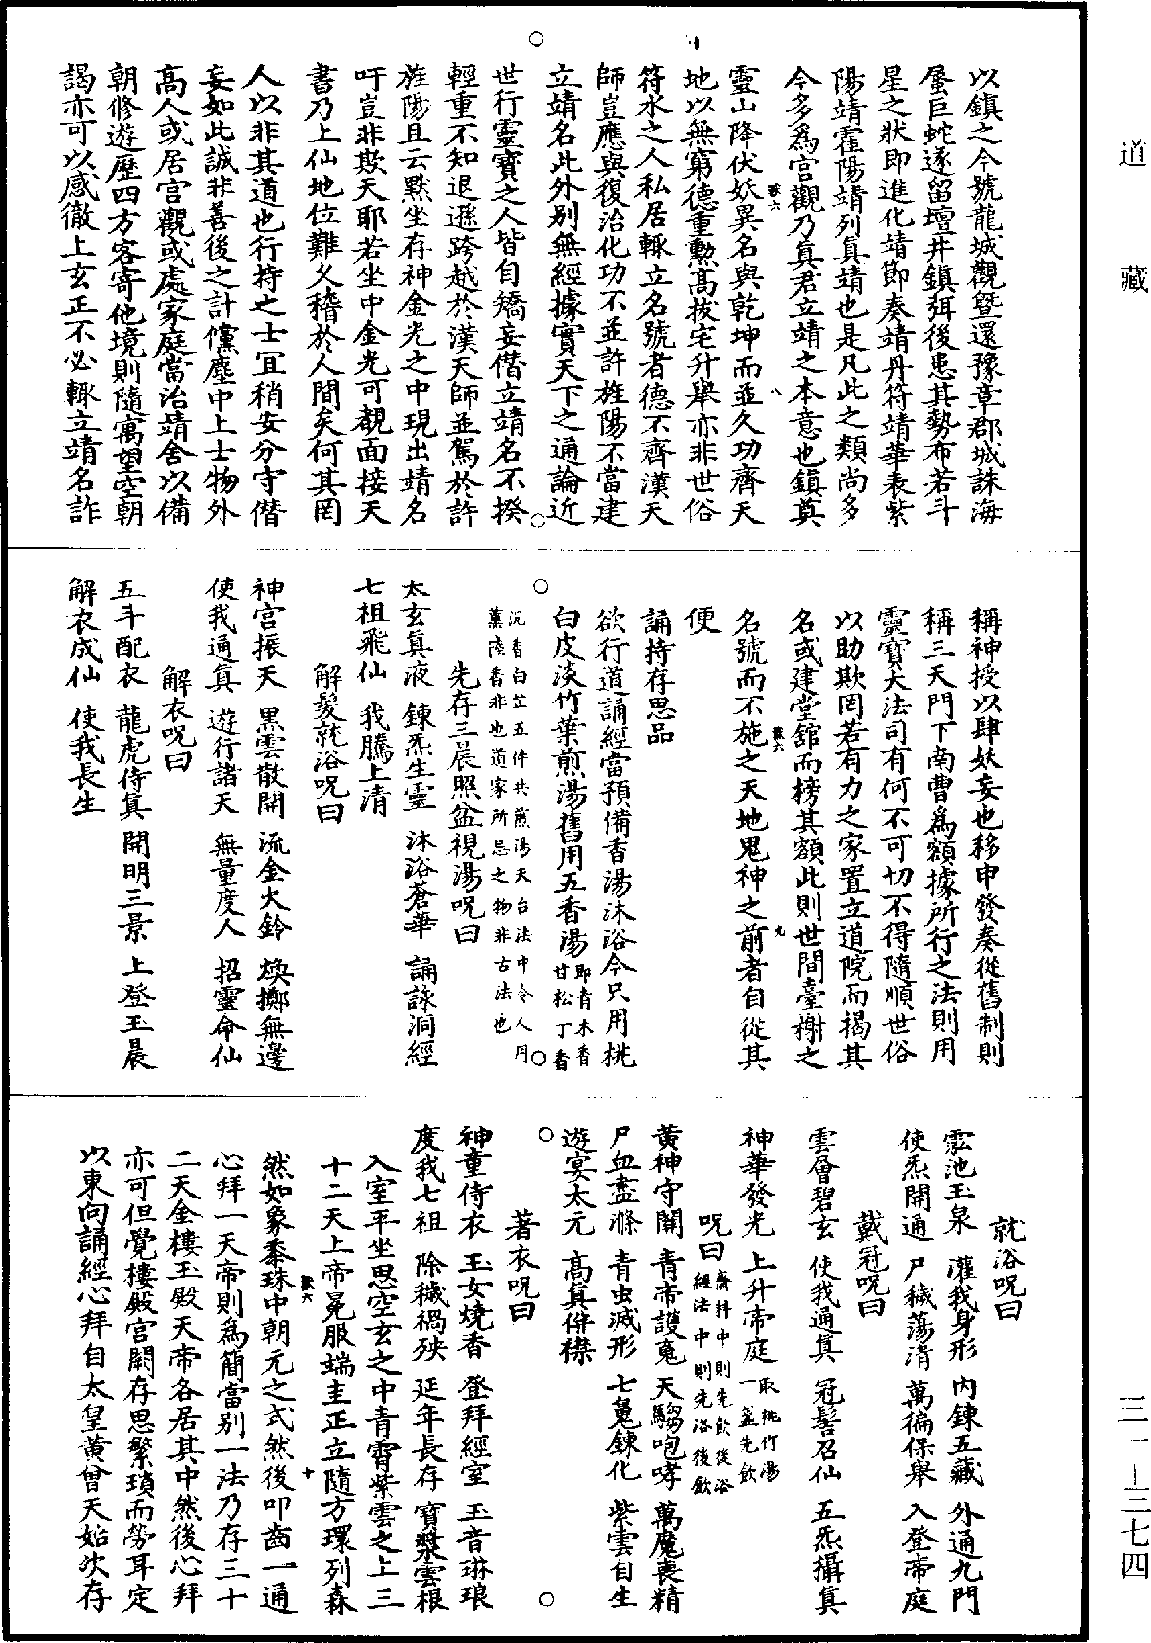 以鎮之今號龍城觀暨還豫章郡城誅海
蜃巨蛇遂留壇井鎮弭後患其勢布若斗
星之狀即進化靖節奏靖丹符靖華表紫
陽靖霍陽靖列真靖也是凡此之類尚多
今多爲宮觀乃真君立靖之本意也鎮奠
靈山降伏妖異名與乾坤而並久功齊天
地以無窮德重勲高拔宅升舉亦非世俗
符水之人私居輒立名號者德不齊漢天
師豈應與復治化功不並許旌陽不當建
立靖名此外別無經據實天下之通論近
世行靈寶之人皆自矯妄僭立靖名不揆
輕重不知退遜跨越於漢天師並駕於許
旌陽且云默坐存神金光之中現出靖名
吁豈非欺天耶若坐中金光可覩面接天
書乃上仙地位難久稽於人間矣何其罔
人以非其道也行持之士宜稍安分守僭
妄如此誠非善後之計儻塵中上士物外
高人或居宮觀或處家庭當治靖舍以備
朝修遊歷四方客寄他境則隨寓望空朝
謁亦可以感徹上玄正不必輒立靖名詐
稱神授以肆妖妄也移申發奏從舊制則
稱三天門下南曹爲額據所行之法則用
靈寶大法司有何不可切不得隨順世俗
以助欺罔若有力之家置立道院而揭其
名或建堂舘而榜其額此則世間臺榭之
名號而不施之天地鬼神之前者自從其
便
誦持存思品
欲行道誦經當預備香湯沐浴今只用桃
白皮淡竹葉煎湯舊用五香湯即青木香甘松丁香
沉香白芷五件共煎湯天台法中令人用
薰陸香非也道家所忌之物非古法也
先存三晨照盆視湯呪曰
太玄真液 鍊炁生靈 沐浴蒼華 誦詠洞經
七祖飛仙 我騰上清
解髮就浴呪曰
神宮振天 黑雲散開 流金火鈴 煥擲無邊
使我通真 遊行諸天 無量度人 招靈命仙
解衣呪曰
五斗配衣 龍虎侍真 開明三景 上登玉晨
解衣成仙 使我長生
就浴呪曰
霐池玉泉 灌我身形 內鍊五藏 外通九門
使炁開通 尸穢蕩清 萬徧保舉 入登帝庭
戴冠呪曰
雲會碧玄 使我通真 冠髻召仙 五炁攝真
神華發光 上升帝庭取桃竹湯一盞先飲
呪曰齋科中則先飲後浴經法中則先浴後飲
黃神守關 青帝護䰟 天騶咆哮 萬魔喪精
尸血盡滌 青虫滅形 七䰟鍊化 紫雲自生
遊宴太元 高真併襟
著衣呪曰
神童侍衣 玉女燒香 登拜經室 玉音琳琅
度我七祖 除穢禍殃 延年長存 寶漿雲根
入室平坐思空玄之中青霄紫雲之上三
十二天上帝冕服端圭正立隨方環列森
然如象黍珠中朝元之式然後叩齒一通
心拜一天帝則爲簡當別一法乃存三十
二天金樓玉殿天帝各居其中然後心拜
亦可但覺樓殿宮闕存思繁瑣而勞耳定
以東向誦經心拜自太皇黃曾天始次存
道藏
三一—三七四